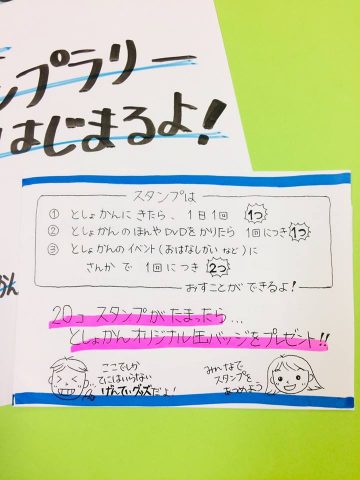 ンプラリー
はじまるよ!
スタンプは
① としょかんに きたら、1日1回 1つ
② としょかんの ほんや DVDを かりたら 1回につき 1つ
③ としょかんの イベント(おはなしかい など)に
さんか で 1回につき 2つ
おすことが できるよ!
20コ スタンプが たまったら...
としょかん オリジナル 缶バッジを プレゼント!!
ここでしか
てにはいらない
げんていグッズだよ!
みんなで
スタンプを
あつめよう